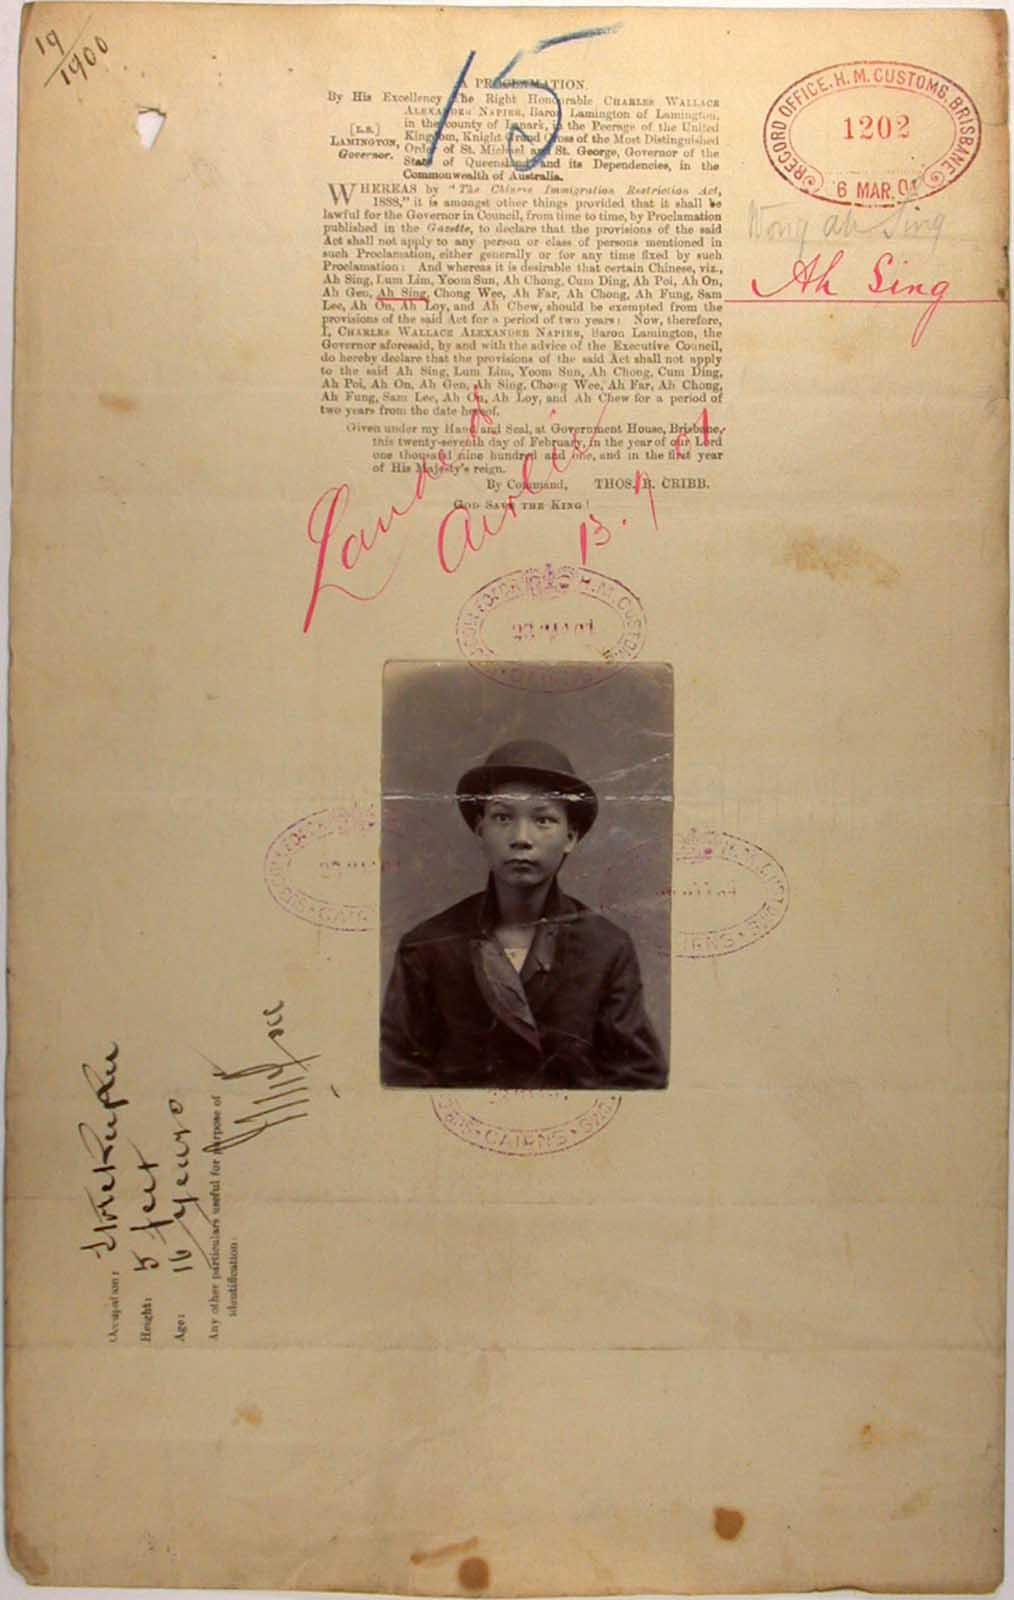 19/1900
15
RECORD OFFICE. H. M. CUSTOMS. BRISBANE
1202
6 MAR. 01
Wong ah Sing
Ah Sing
A PROCLAMATION.
By His Excellency The Right Honourable CHARLES WALLACE
ALEXANDER NAPIER, Baron Lamington of Lamington,
in the county of Lanark, in the Peerage of the United
[L.S.] Kingdom, Knight Grand Cross of the Most Distinguished
LAMINGTON, Order of St. Michael and St. George, Governor of the
Governor. State of Queensland and its Dependencies, in the
Commonwealth of Australia.
WHEREAS by "The Chinese Immigration Restriction Act,
1888," it is amongst other things provided that it shall be
lawful for the Governor in Council, from time to time, by Proclamation
published in the Gazette, to declare that the provisions of the said
Act shall not apply to any person or class of persons mentioned in
such Proclamation, either generally or for any time fixed by such
Proclamation: And whereas it is desirable that certain Chinese, viz.,
Ah Sing, Lum Lim, Yoom Sun, Ah Chong, Cum Ding, Ah Poi, Ah On,
Ah Gen, Ah Sing, Chong Wee, Ah Far, Ah Chong, Ah Fung, Sam
Lee, Ah On, Ah Loy, and Ah Chew, should be exempted from the
provisions of the said Act for a period of two years: Now, therefore,
I, CHARLES WALLACE ALEXANDER NAPIER, Baron Lamington, the
Governor aforesaid, by and with the advice of the Executive Council,
do hereby declare that the provisions of the said Act shall not apply
to the said Ah Sing, Lum Lim, Yoom Sun, Ah Chong, Cum Ding,
Ah Poi, Ah On, Ah Gen, Ah Sing, Chong Wee, Ah Far, Ah Chong,
Ah Fung, Sam Lee, Ah On, Ah Loy, and Ah Chew for a period of
two years from the date hereof.
Given under my Hand and Seal, at Government House, Brisbane,
this twenty-seventh day of February, in the year of our Lord
one thousand nine hundred and one, and in the first year
of His Majesty's reign.
By Command, THOS. B. CRIBB.
GOD SAVE THE KING!
Landed
Airlie
H. M. CUSTOMS
CAIRNS
CAIRNS
CAIRNS
Occupation: Storekeeper
Height: 5 feet
Age: 16 years
Any other particulars useful for purpose of
identification: